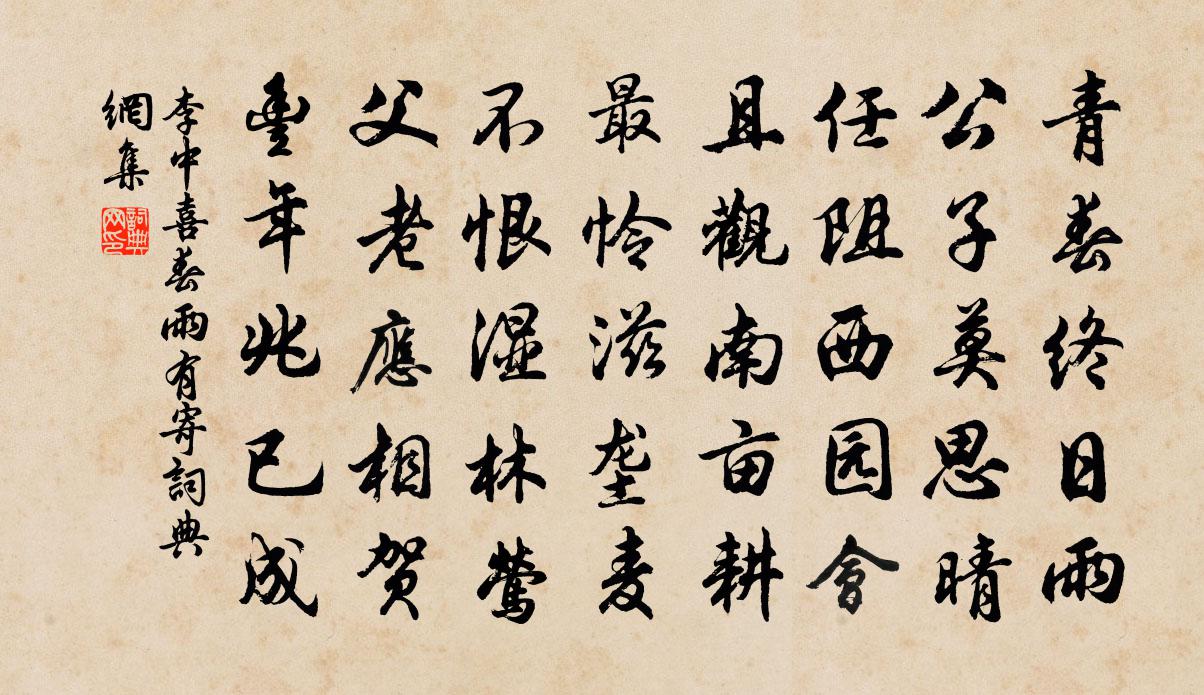 青春终日雨
公子莫思晴
任阻西园會
且觀南亩耕
最怜滋垄麦
不恨湿林莺
父老應相贺
豊年兆已成
李中喜春雨有寄詞典
網集
詞典
网印